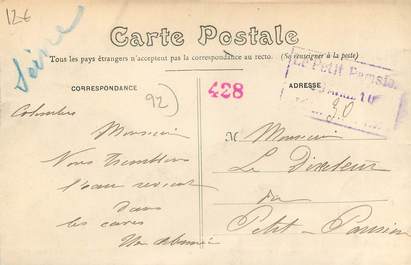 12€
Seine
Carte Postale
Tous les pays étrangers n'acceptent pas la correspondance au recto. (Se renseigner à la poste)
CORRESPONDANCE
92)
428
ADRESSE
Le Petit Parisien
Colombes
Monsieur
Nous tremblons
l'eau revient
dans
les caves
Un abonné
M Monsieur
Le Directeur
du
Petit Parisien